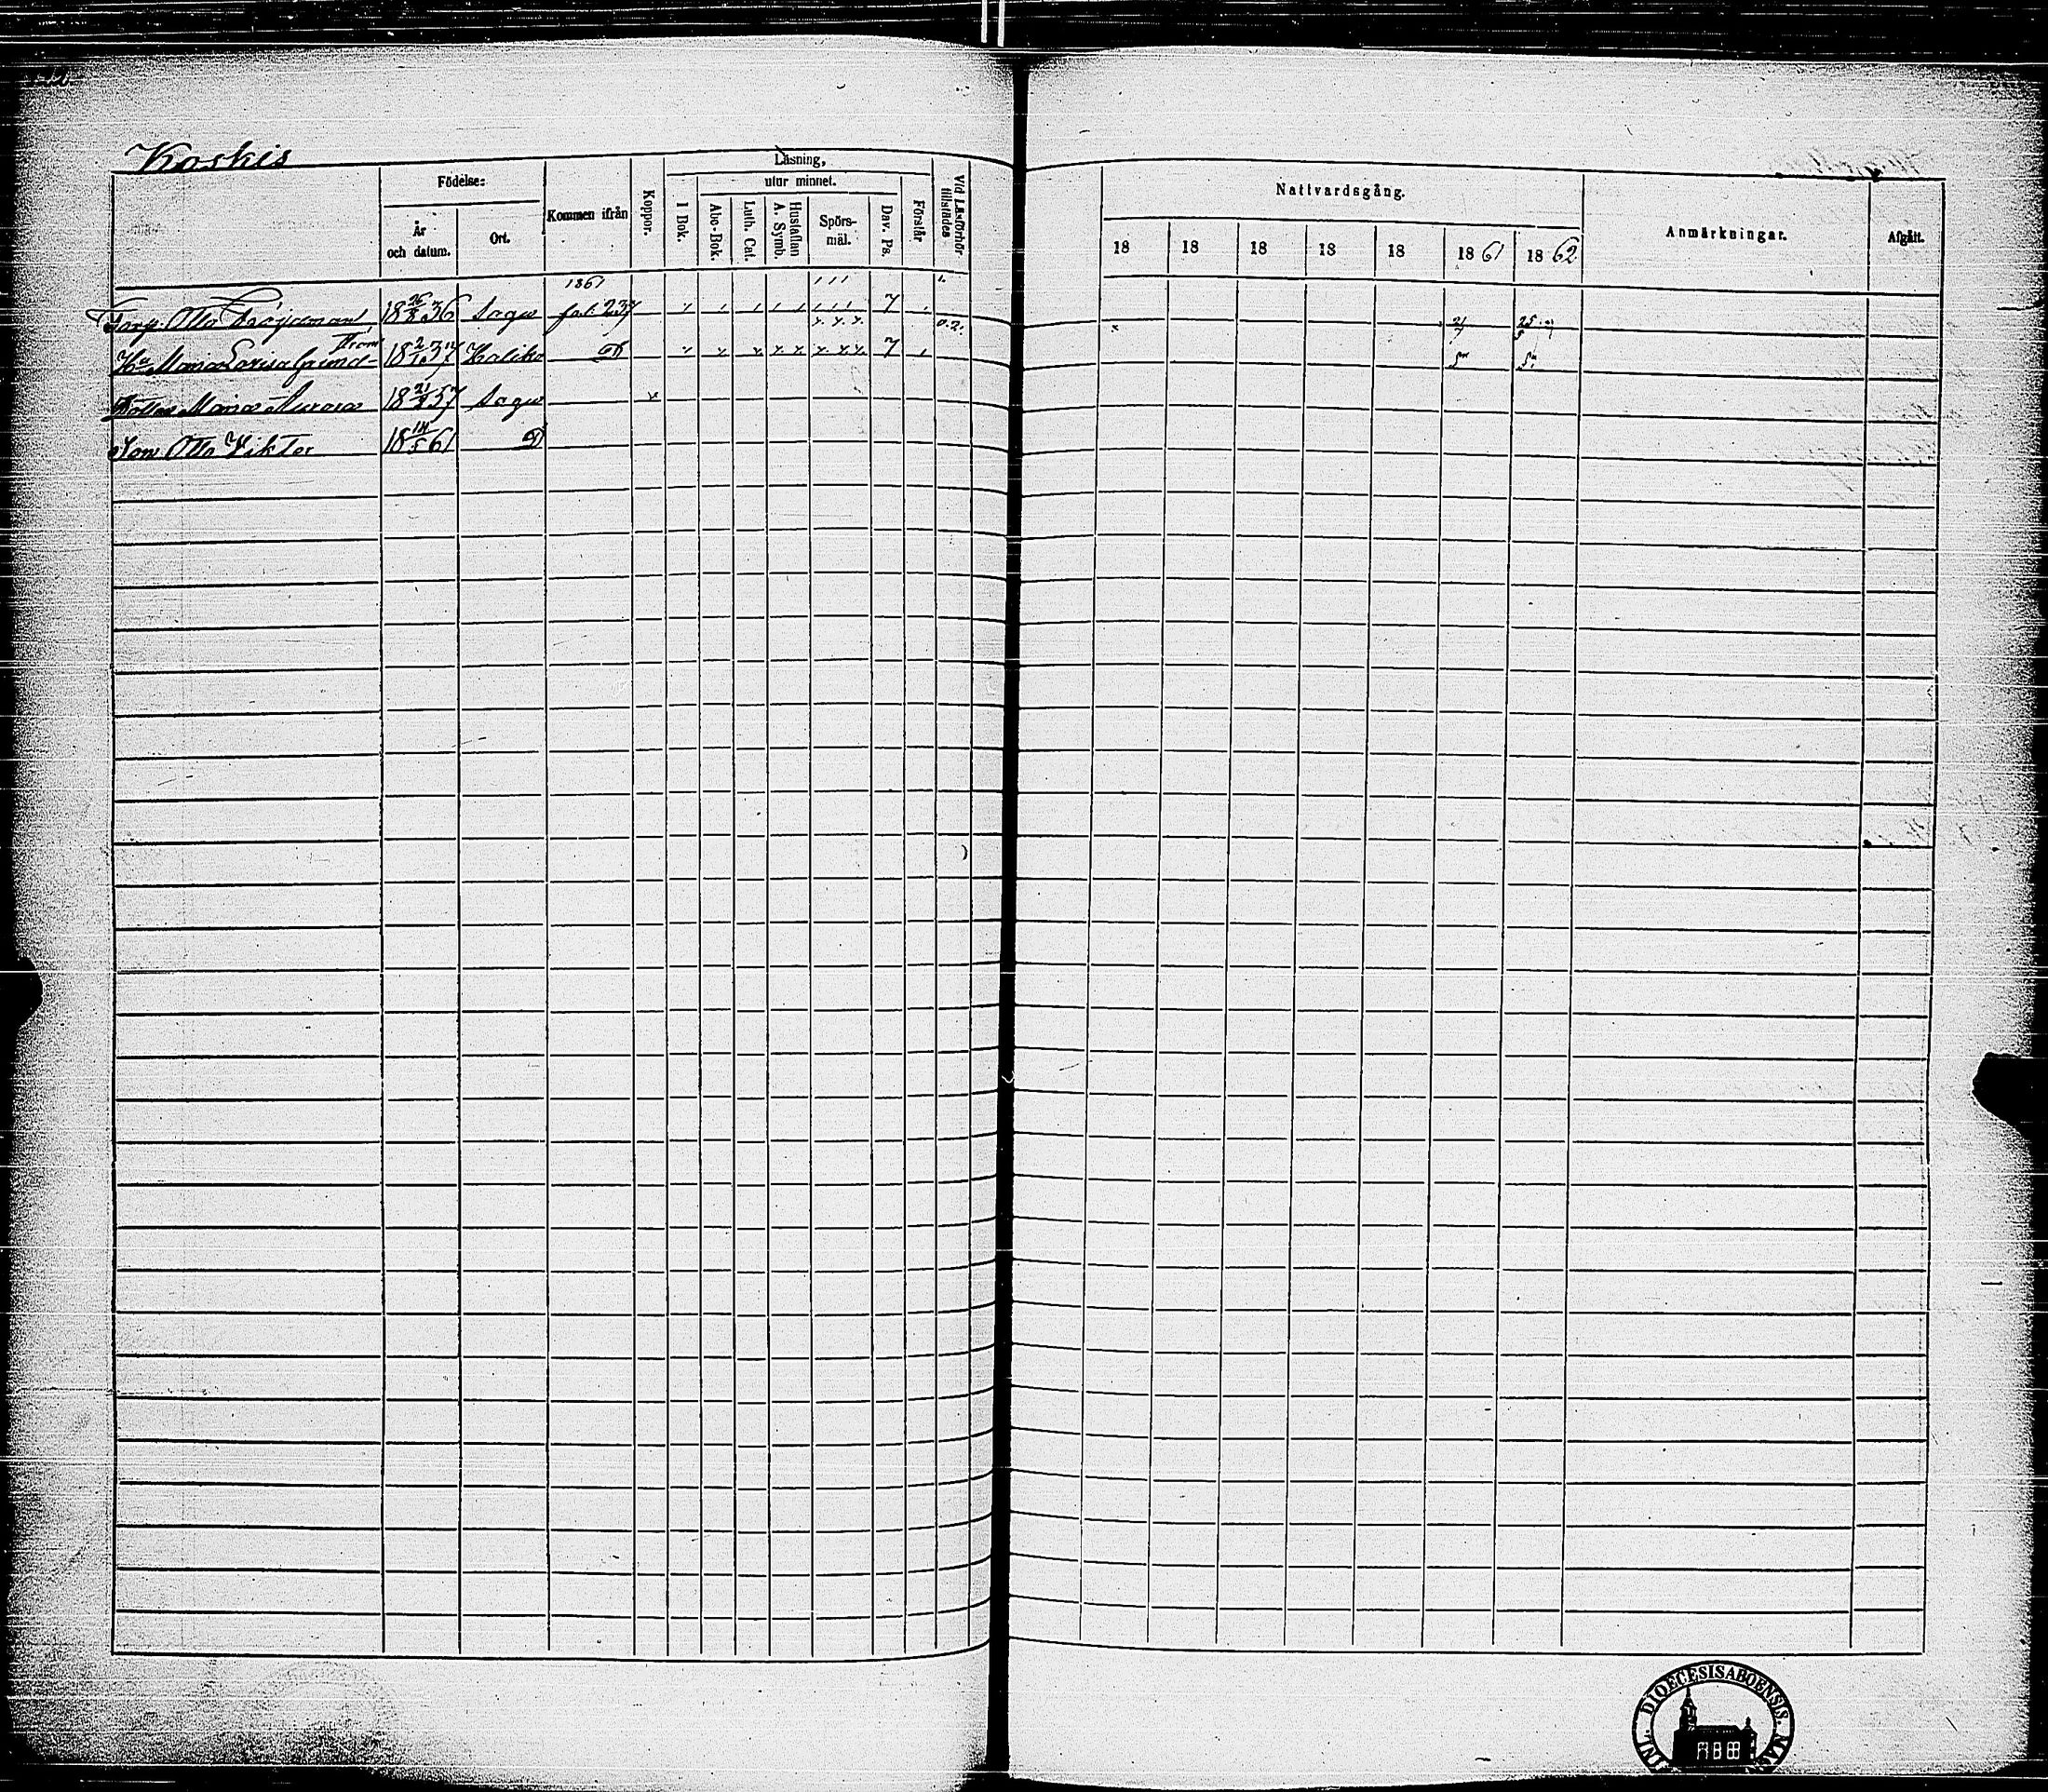 Koskis
Födelse:
År och datum.
Ort.
Kommen ifrån
Koppor.
Läsning,
I Bok.
utur minnet.
Abc-Bok.
Luth. Cat.
Hustaflan A. Symb.
Spörs-mål.
Dav. Ps.
Förstår
Vid Läsförhör tillstädes
Nattvardsgång.
18 18 18 18 18 18 61 18 62
Anmärkningar.
Afgått.
1861
Torp. Otto Fröjdeman 18 26/8 36 Sagu fol. 237 7 0.2. 21/7 25/5
Hu Maria Lovisa Grund- 18 2/1 37 Haliko D 7
Dotter Maria Aurora 18 21/8 57 Sagu
Son Otto Viktor 18 14/5 61 D
DIOECESIS ABOENSIS.